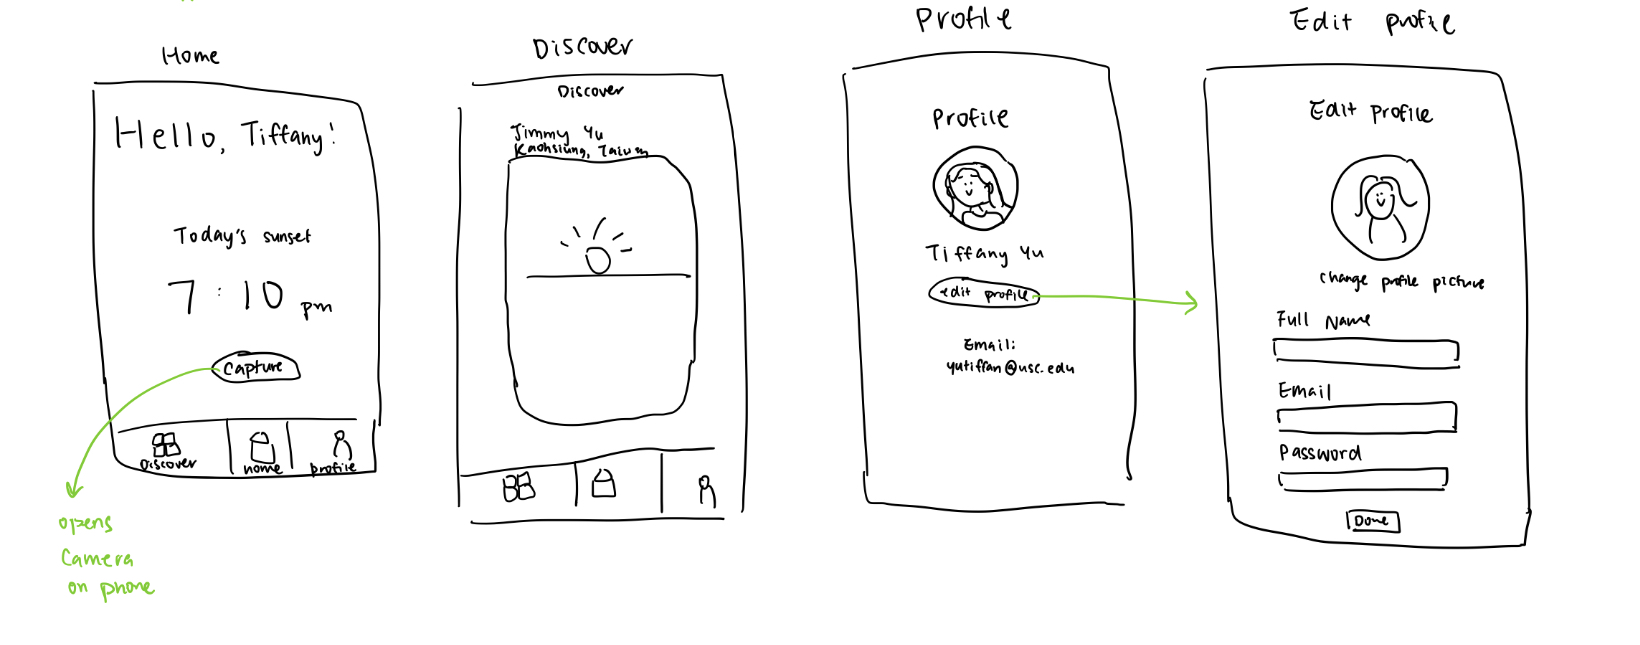 Home
Hello, Tiffany!
Today's sunset
7:10 pm
Capture
Discover
home
profile
opens
Camera
on phone
Discover
Discover
Jimmy Yu
Kaohsiung, Taiwan
Profile
Profile
Tiffany Yu
edit profile
Email:
yutiffan@usc.edu
Edit profile
Edit Profile
change profile picture
Full Name
Email
Password
Done